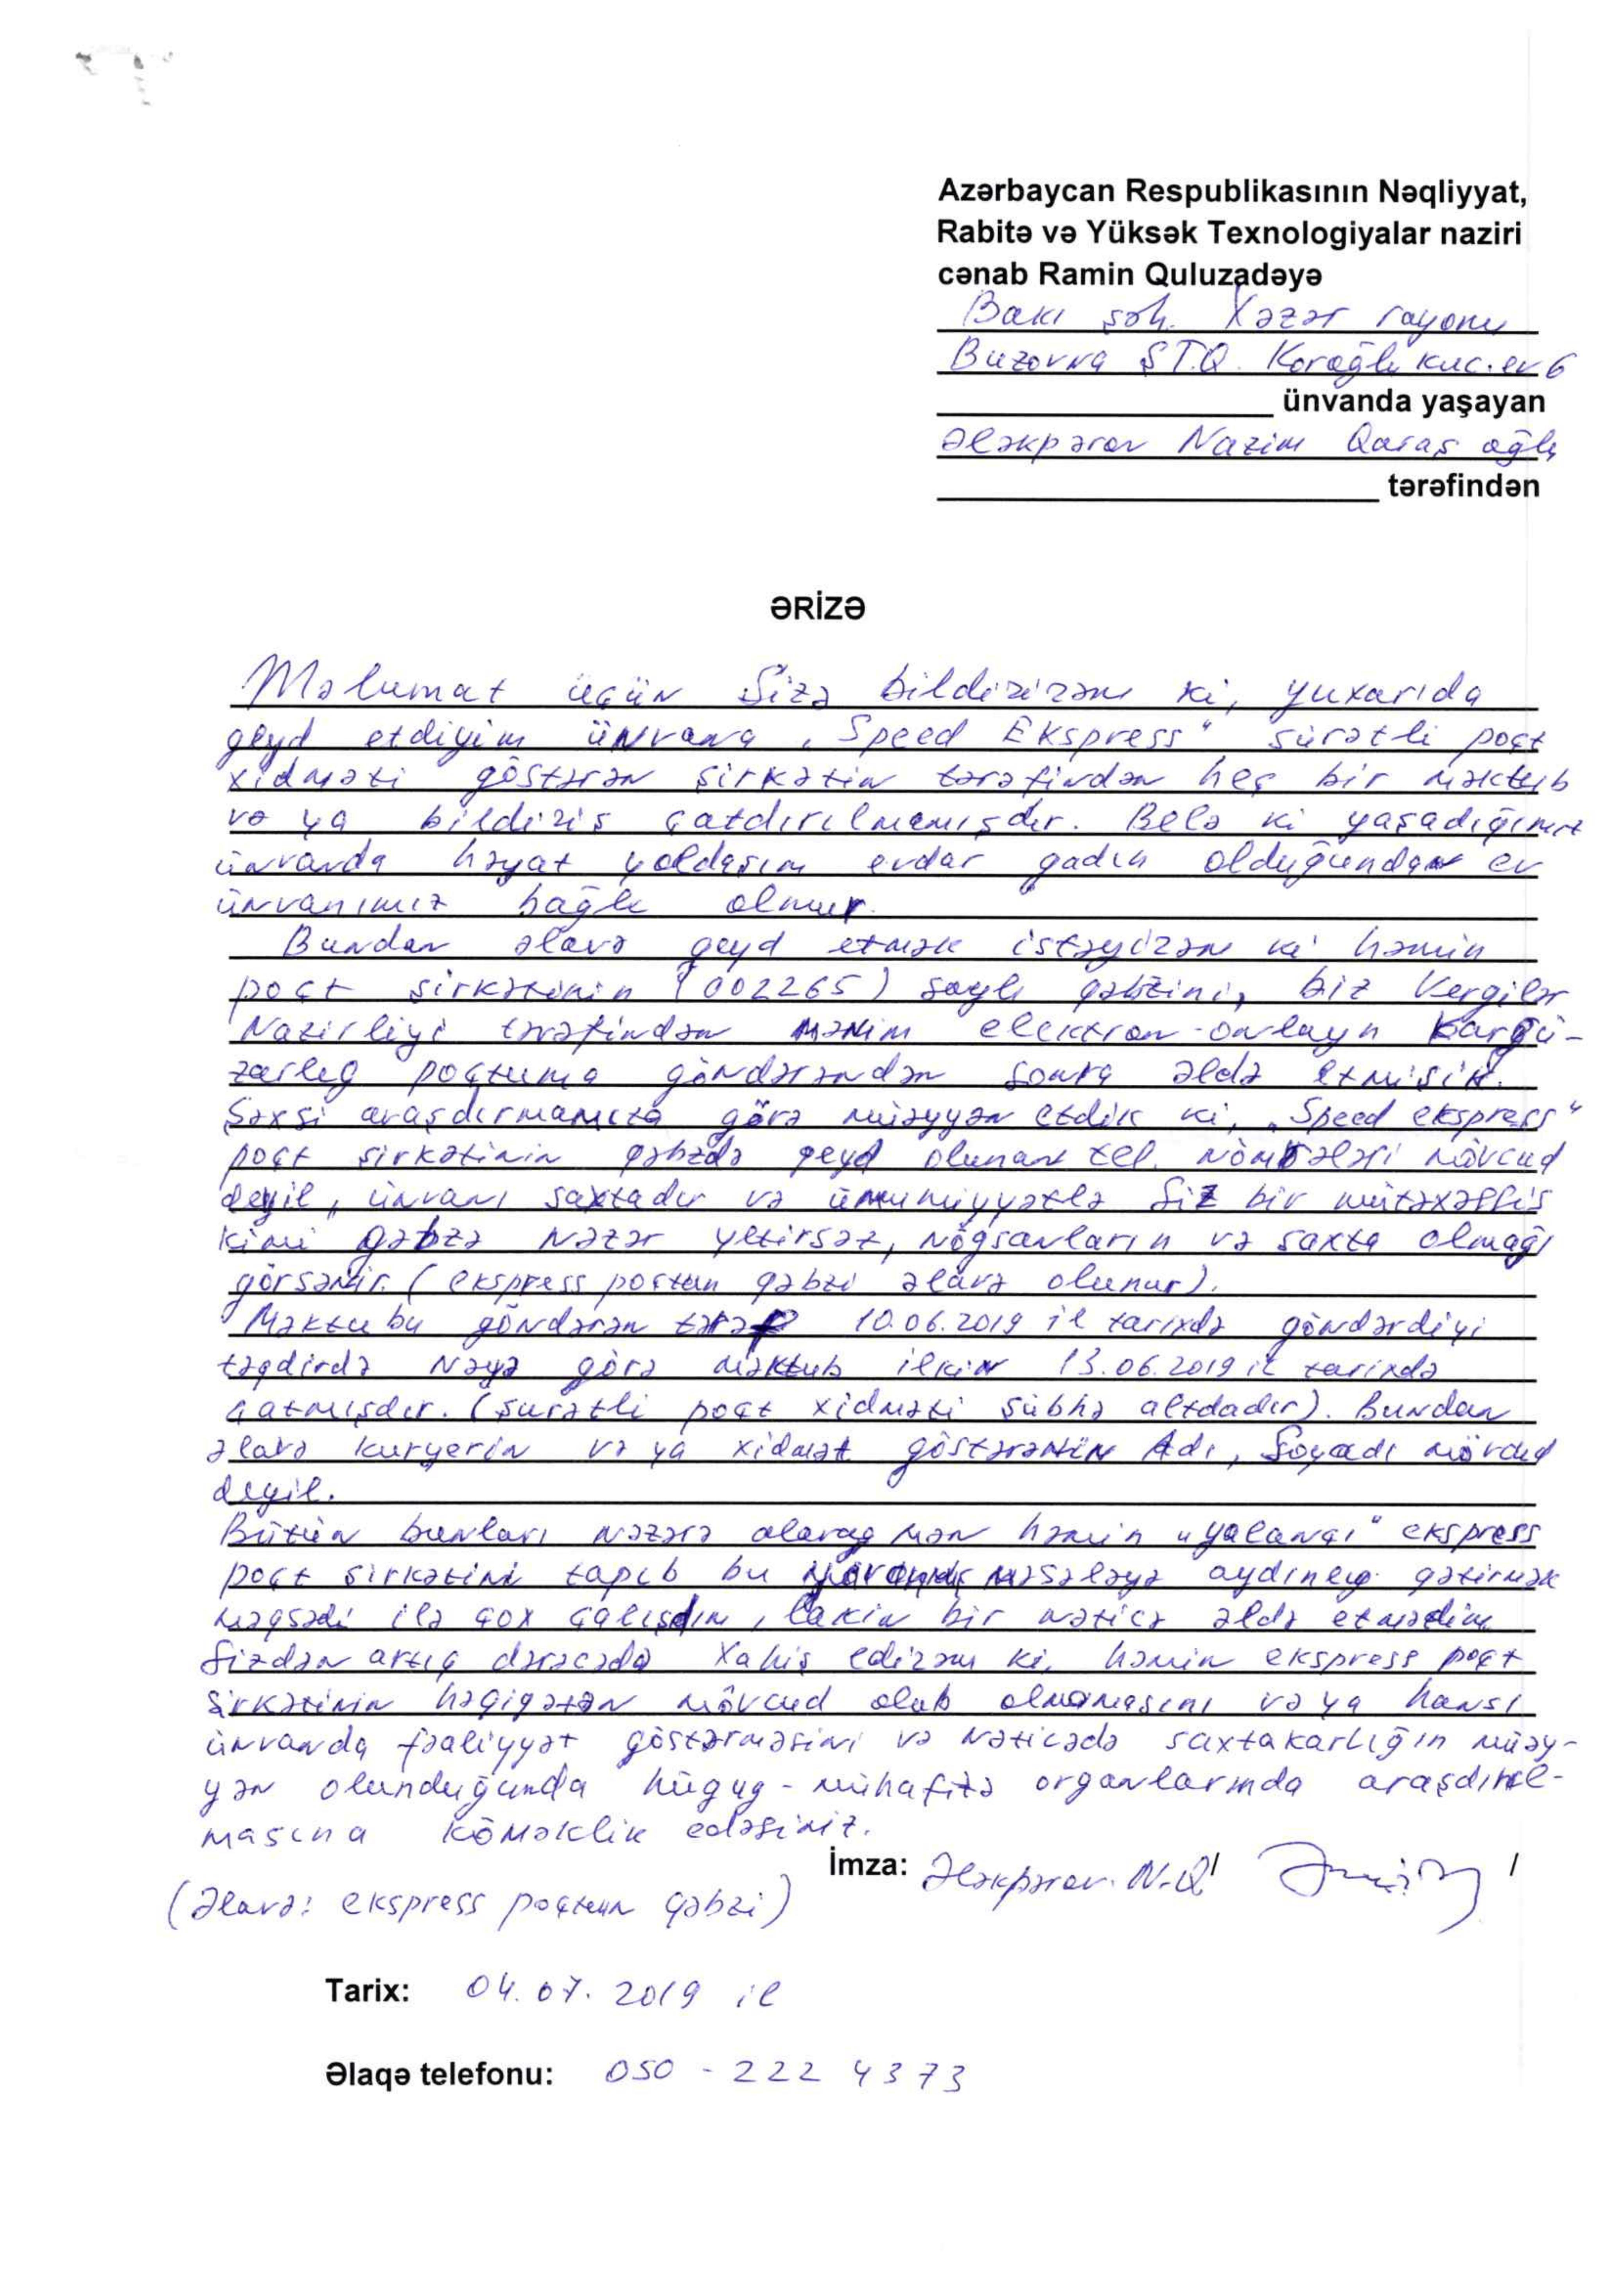 Azərbaycan Respublikasının Nəqliyyat,
Rabitə və Yüksək Texnologiyalar naziri
cənab Ramin Quluzadəyə
Bakı şəh. Xəzər rayonu
Buzovna ŞTQ. Koroğlu küç. ev 6
ünvanda yaşayan
Ələkpərov Nazim Qaraş oğlu
tərəfindən
ƏRİZƏ
Məlumat üçün Sizə bildirirəm ki, yuxarıda
qeyd etdiyim ünvana „Speed Ekspress“ sürətli poçt
xidməti göstərən şirkətin tərəfindən heç bir məktub
və ya bildiriş çatdırılmamışdır. Belə ki yaşadığımız
ünvanda həyat yoldaşım evdar qadın olduğundan ev
ünvanımız bağlı olmur.
Bundan əlavə qeyd etmək istəyirəm ki həmin
poçt şirkətinin (002265) saylı qəbzini, biz Vergilər
Nazirliyi tərəfindən mənim elektron-onlayn kargü-
zarlıq poçtuma göndərəndən sonra əldə etmişik.
Şəxsi araşdırmamıza görə müəyyən etdik ki, „Speed ekspress“
poçt şirkətinin qəbzdə qeyd olunan tel. nömrələri mövcud
deyil, ünvanı saxtadır və ümumiyyətlə Siz bir mütəxəssis
kimi qəbzə nəzər yetirsəz, nöqsanların və saxta olmağı
görsənir. (ekspress poçtun qəbzi əlavə olunur).
Məktubu göndərən tərəf 10.06.2019 il tarixdə göndərdiyi
təqdirdə nəyə görə məktub ilkin 13.06.2019 il tarixdə
çatmışdır. (sürətli poçt xidməti şübhə altdadır). Bundan
əlavə kuryerin və ya xidmət göstərənin Adı, Soyadı mövcud
deyil.
Bütün bunları nəzərə alaraq mən həmin „yalançı“ ekspress
poçt şirkətini tapıb bu məsələyə aydınlıq gətirmək
məqsədi ilə çox çalışdım, lakin bir nəticə əldə etmədim.
Sizdən artıq dərəcədə Xahiş edirəm ki, həmin ekspress poçt
şirkətinin həqiqətən mövcud olub olmamasını və ya hansı
ünvanda fəaliyyət göstərməsini və nəticədə saxtakarlığın müəy-
yən olunduğunda hüquq-mühafizə orqanlarında araşdırıl-
masına köməklik edəsiniz.
İmza: Ələkpərov. N.Q. / /
(Əlavə: ekspress poçtun qəbzi)
Tarix: 04.07.2019 il
Əlaqə telefonu: 050 - 222 43 73